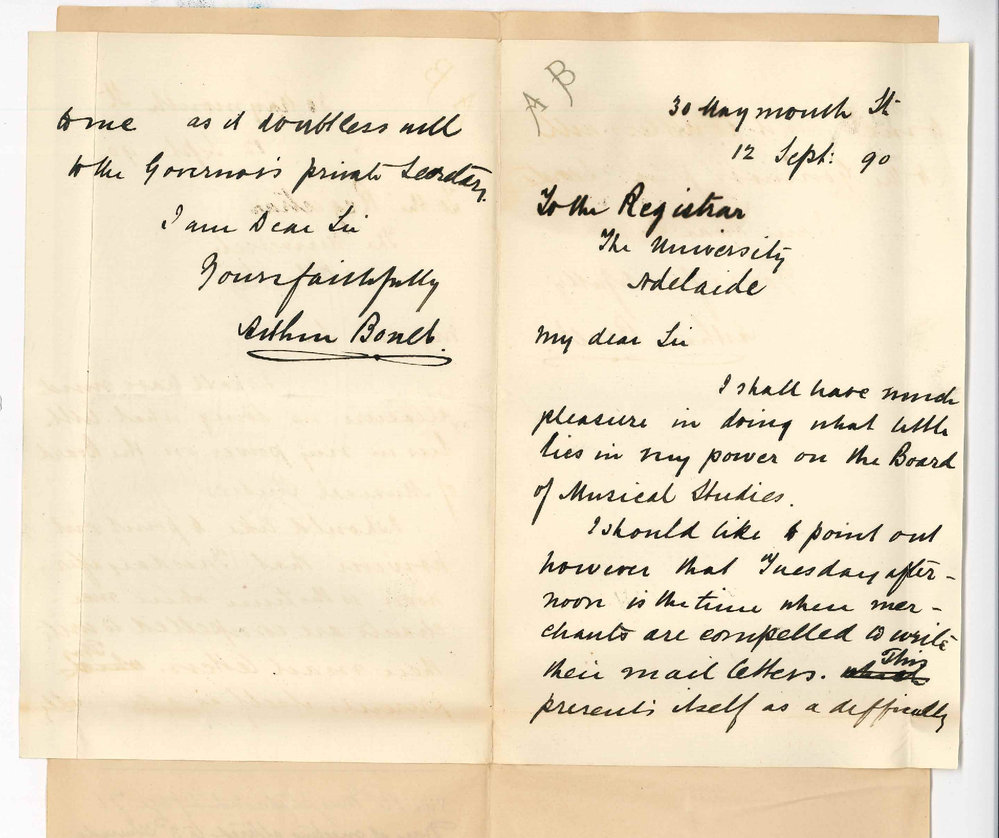 A B
30 Waymouth St
12 Sept: 90
To the Registrar
The University
Adelaide
My dear Sir
I shall have much
pleasure in doing what little
lies in my power on the Board
of Musical Studies.
I should like to point out
however that Tuesday after-
noon is the time when mer-
chants are compelled to write
their mail letters. This
presents itself as a difficulty
to me as it doubtless will
to the Governor's private Secretary.
I am Dear Sir
Yours faithfully
Arthur